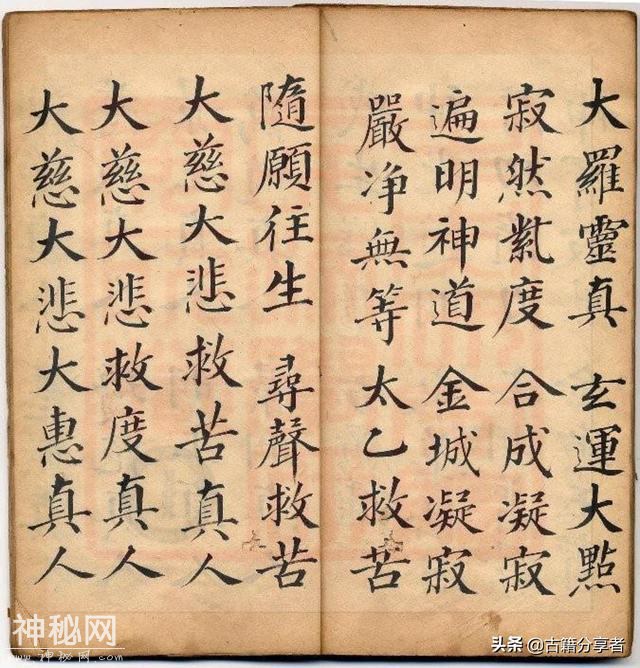 大羅靈真　玄運大點
寂然氣度　合成凝寂
遍明神道　金城凝寂
嚴净無等　太乙救苦
隨願往生　尋聲救苦
大慈大悲救苦真人
大慈大悲救度真人
大慈大悲大惠真人
神秘网
www.shenmiwang.com
头条 @古籍分享者